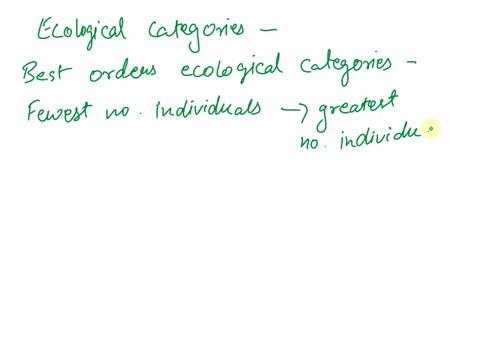 Ecological categories -
Best orders ecological categories -
Fewest no. individuals → greatest
no. individu